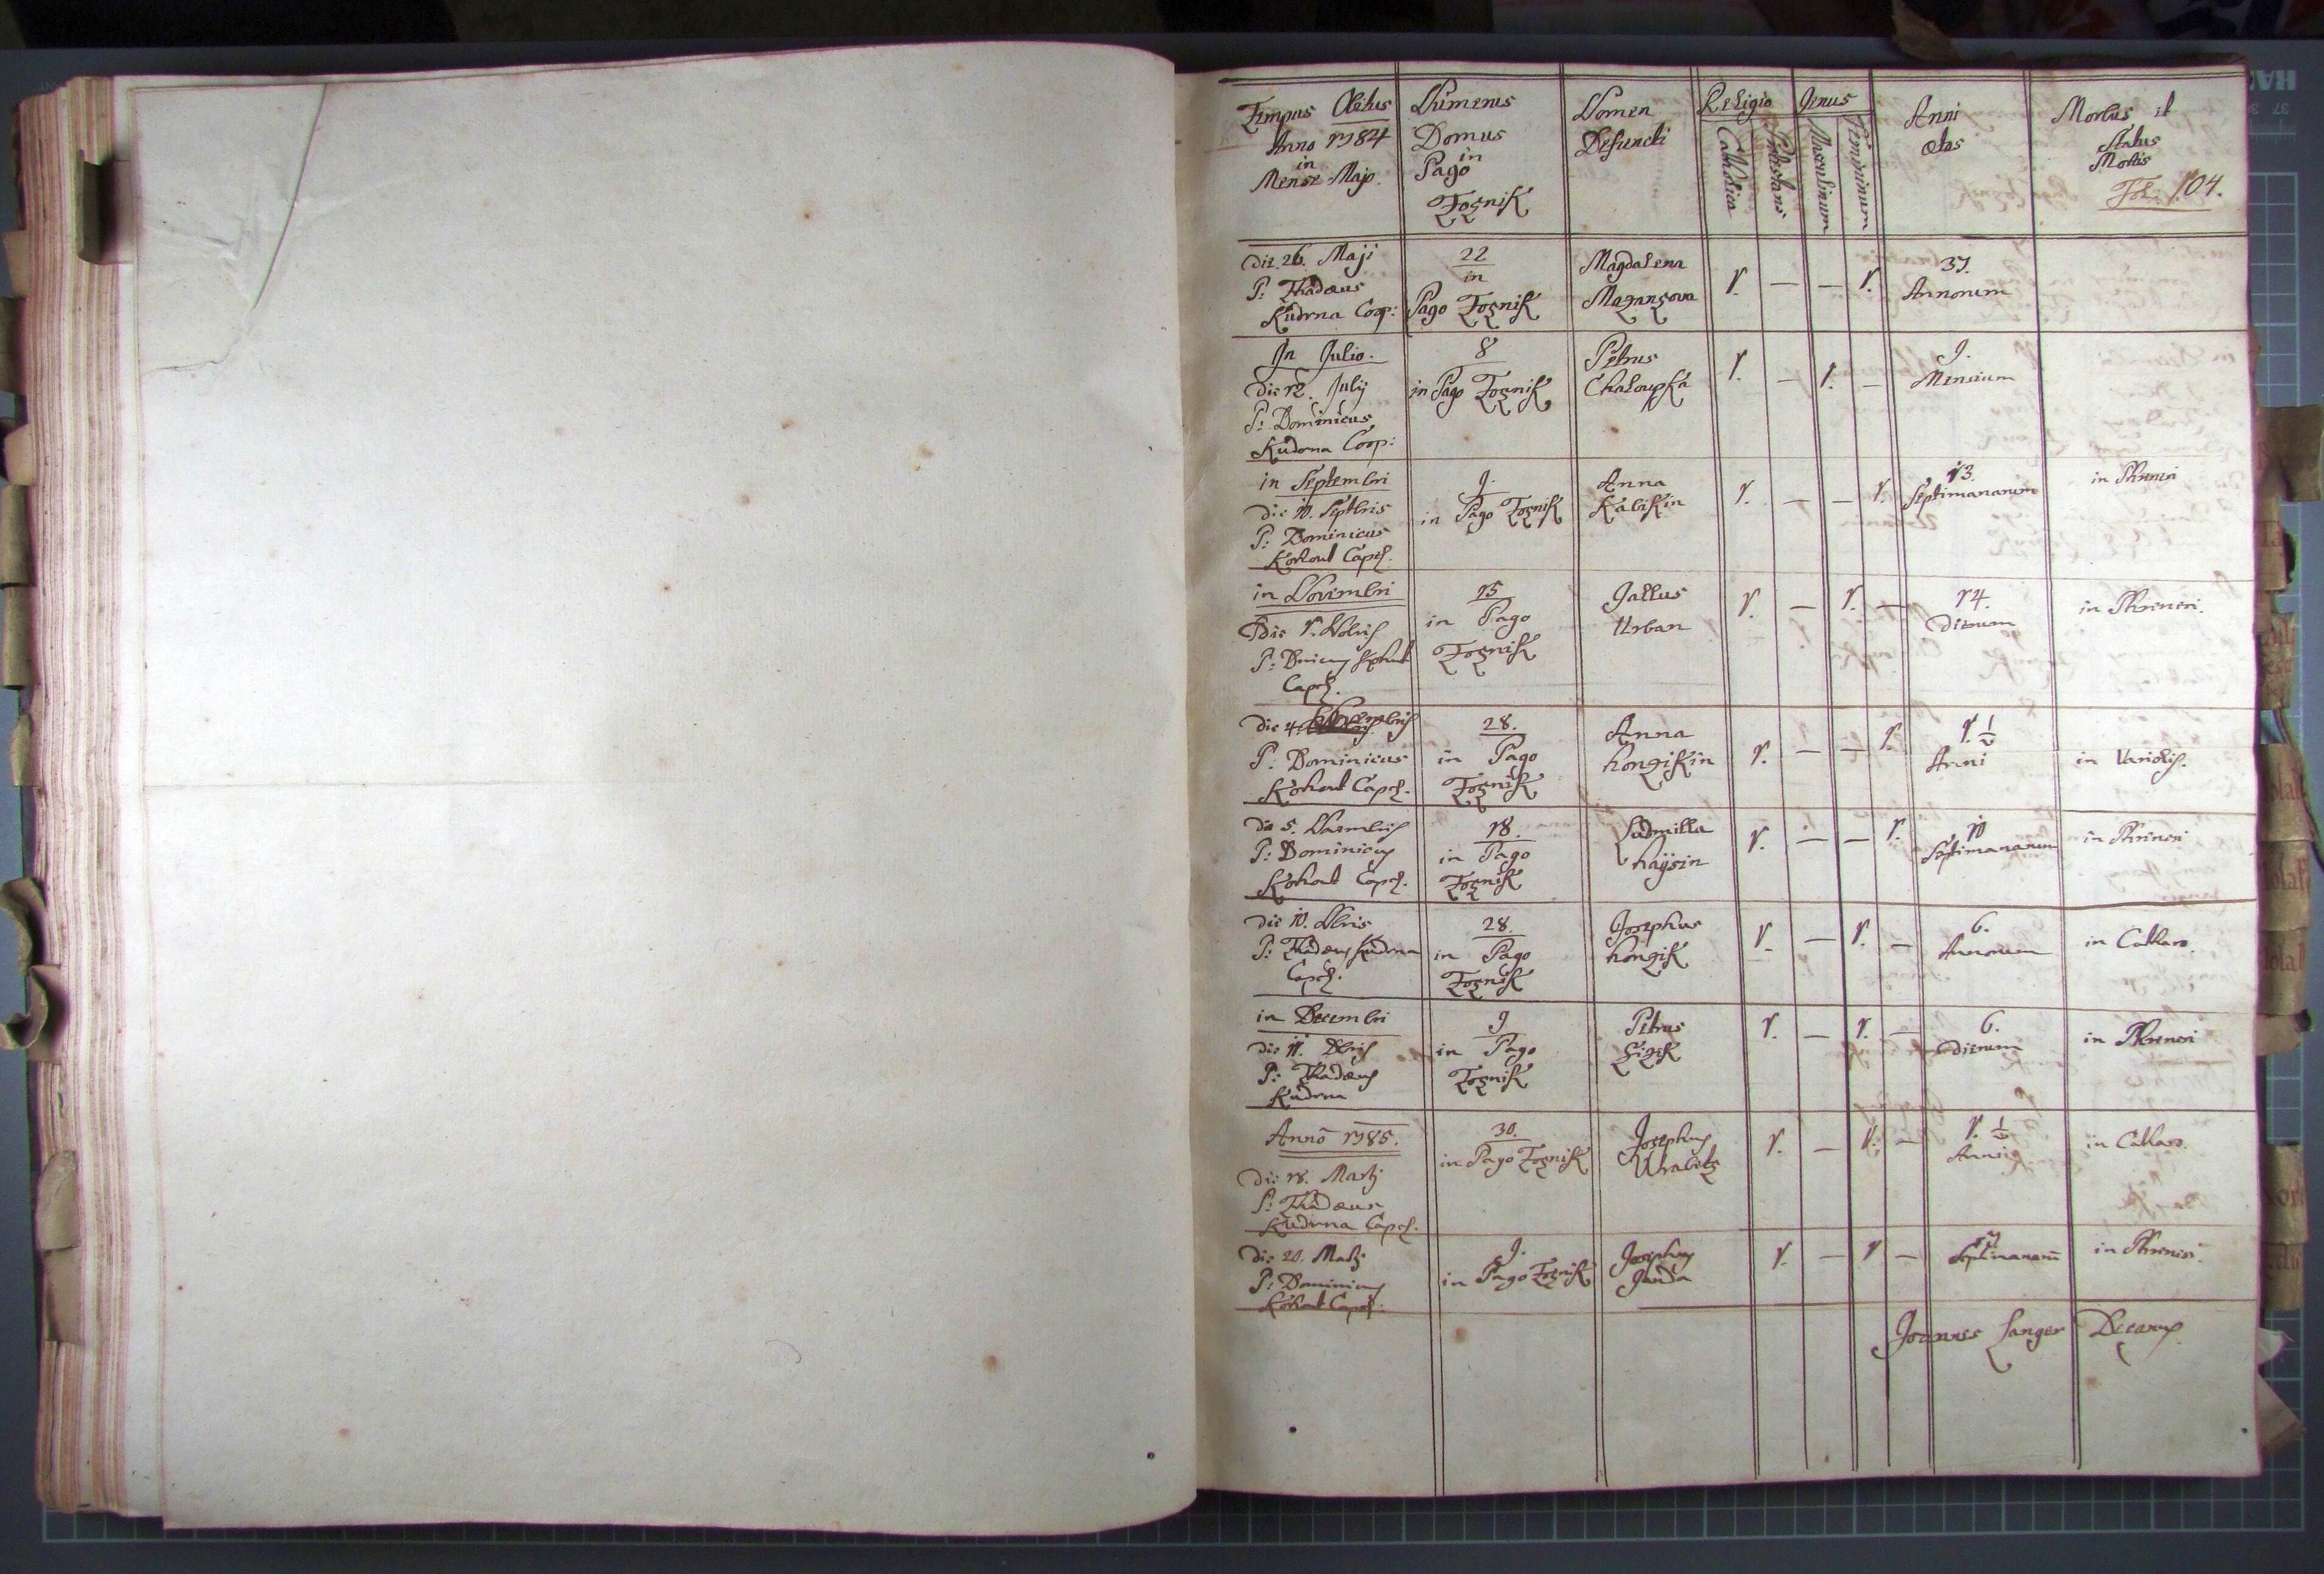 Tempus Obitus
Anno 1784
in
Mense Majo.
Numerus
Domus
in
Pago
Tożnik
Nomen
Defuncti
Religio
Catholica
Genus
Masculinum
Femininum
Anni
ætas
Morbus et
Status
Mortis
Fol: 104.
Die 26. Maji
P: Thadæus
Kudrna Coop:
22
in
Pago Tożnik
Magdalena
1. — — 1.
37.
Annorum
In Julio.
Die 12. Julij
P: Dominicus
Kudrna Coop:
8
in Pago Tożnik
Petrus
Chaloupka
1. — 1. —
9.
Mensium
in Septembri
die 10. Septbris
P: Dominicus
Kohout Capel.
9.
in Pago Tożnik
Anna
Kalikin
1. — — 1.
13.
Septimanarum
in Phrenesi
in Novembri
Die 1. Nobris
P: Dnicus Kohout
Capel.
15
in Pago
Tożnik
Gallus
Urban
1. — 1. —
14.
Dierum
in Phrenesi.
die 4. Novembris
P: Dominicus
Kohout Capel.
28.
in Pago
Tożnik
Anna
Honzikin
1. — — 1.
1. 1/2
Anni
in Variolis.
die 5. Novembris
P: Dominicus
Kohout Capel.
18.
in Pago
Tożnik
Ludmilla
Haysin
1. — — 1.
10
Septimanarum
in Phrenesi
die 10. Nbris
P: Thadæus Kudrna
Capel.
28.
in Pago
Tożnik
Josephus
Honzik
1. — 1. —
6.
Annorum
in Catharo.
in Decembri
die 11. Xbris
P: Thadæus
Kudrna
9
in Pago
Tożnik
Petrus
1. — 1. —
6.
Dierum
in Phrenesi
Anno 1785.
Die 18. Martij
P: Thadæus
Kudrna Capel.
30.
in Pago Tożnik
Josephus
Wrabetz
1. — 1. —
1. 1/2
Anni
in Catharo.
die 20. Martij
P: Dominicus
Kohout Capel.
9.
in Pago Tożnik
Josephus
Janda
1. — 1 —
Septimanarum
in Phrenesi.
Joannes Langer Decanus